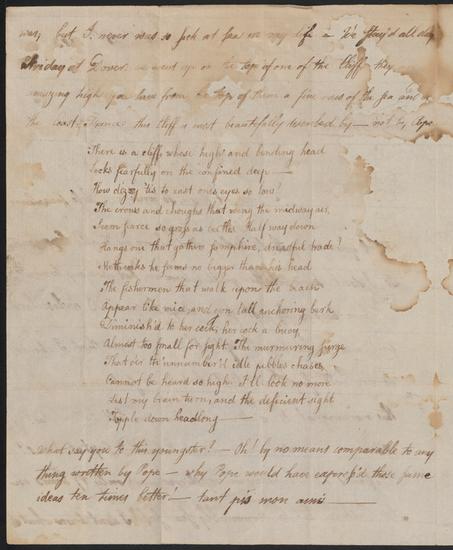 way, but I never was so sick at sea in my life — We stay'd all day
Friday at Dover. we went up on the top of one of the cliffs they
amazing high you have from the top of them a fine view of the sea and
the coast of France this cliff is most beautifully described by — not by Pope
There is a cliff, whose hight and bending head
looks fearfully on the confined deep —
How dizzy 'tis to cast ones eyes so low!
The crows and choughs that wing the midway air,
Seem scarce so gross as beetles Half way down
Hangs one that gathers samphire, dreadful trade!
Methinks he seems no bigger than his head
The fishermen that walk upon the beach
Appear like mice, and yon tall anchoring bark
Diminish'd to her cock; her cock a buoy
Almost too small for sight. The murmuring surge
That o'er th'unnumber'd idle pebbles chafes
Cannot be heard so high. I'll look no more
Lest my brain turn, and the deficient sight
Topple down headlong —
what say you to this youngster? — Oh! by no means comparable to any
thing written by Pope — why Pope would have express'd those same
ideas ten times better! — tant pis mon ami —